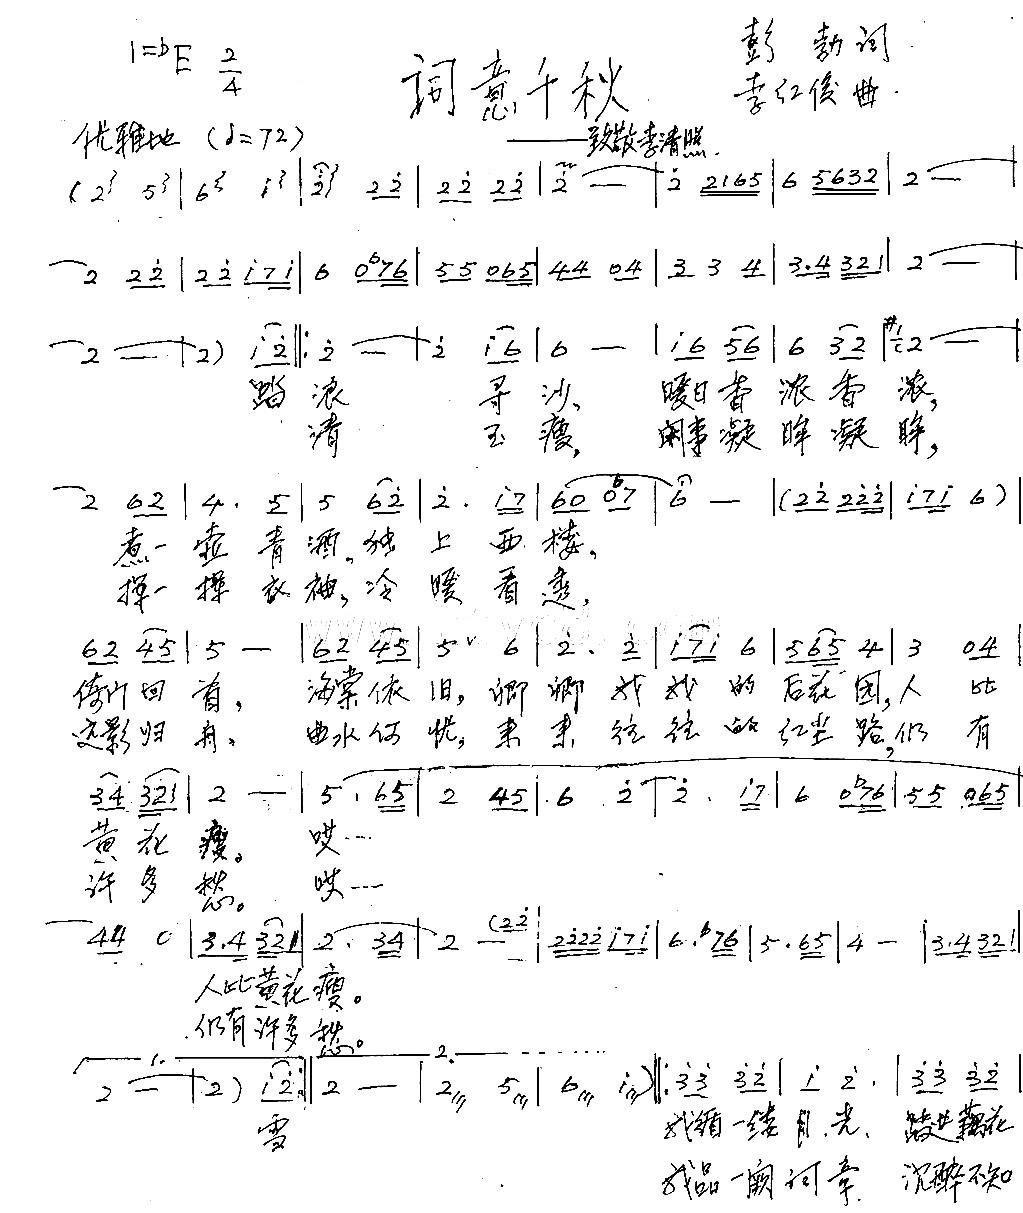 1=bE 2/4
詞意千秋
彭勃词
李红俊曲
优雅地 (♩=72)
——致敬李清照
(2 5 | 6 i | 2 22 | 22 22 | 2 — | 2 2165 | 6 5632 | 2 — |
2 22 | 22 i7i | 6 0b76 | 55 065 | 44 04 | 3 3 4 | 3.4 321 | 2 — |
2 — | 2) i2 ‖: 2 — | 2 i6 | 6 — | i6 56 | 6 32 | 2 — |
踏浪 寻沙, 暖日香浓香浓,
清 玉瘦, 闲事凝眸凝眸,
2 62 | 4. 5 | 5 62 | 2. i7 | 60 0b7 | 6 — | (22 222 | i7i 6) |
煮一壶青酒,独上西楼,
掸一掸衣袖,冷暖看透,
62 45 | 5 — | 62 45 | 5 6 | 2. 2 | i7i 6 | 565 4 | 3 04 |
倚门回首, 海棠依旧,卿卿我我的后花园,人比
疏影归舟, 曲水何忧,来来往往的红尘路,仍有
34 321 | 2 — | 5. 65 | 2 45 | 6 2 | 2. i7 | 6 0b76 | 55 065 |
黄花瘦。 哎……
许多愁。 哎……
44 0 | 3.4 321 | 2. 34 | 2 — (22 | 2222 i7i | 6. b76 | 5. 65 | 4 — | 3.4 321 |
人比黄花瘦。
仍有许多愁。
1. 2.
2 — | 2) i2 :‖ 2 — | 2 5 | 6 i) ‖: 33 32 | i 2. | 33 32 |
雪 我循一缕月光、踱进藕花
我品一阕词章 沉醉不知